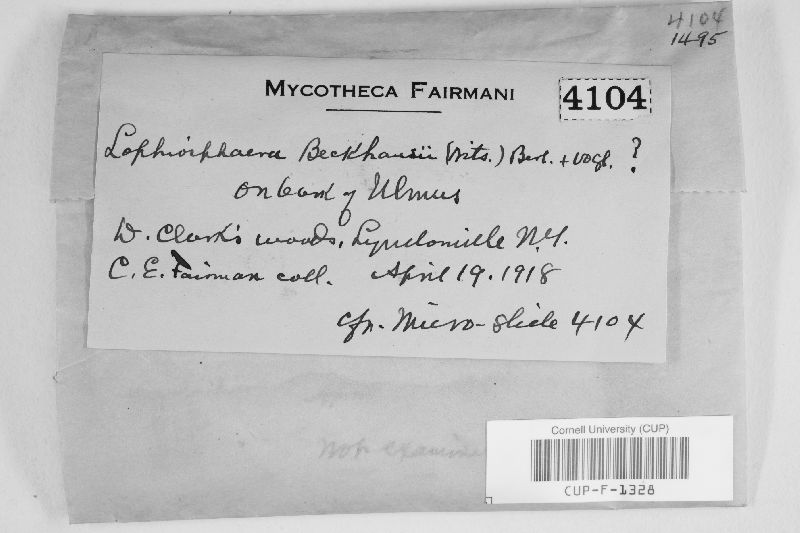 4104
1495
MYCOTHECA FAIRMANI
4104
Lophiosphaera Beckhausii (Nits.) Berl. + Vogl. ?
on bark of Ulmus
D. Clark's woods, Lyndonville N.Y.
C. E. Fairman coll. April 19. 1918
Cfr. Micro-slide 4104
Not examined
Cornell University (CUP)
CUP-F-1328